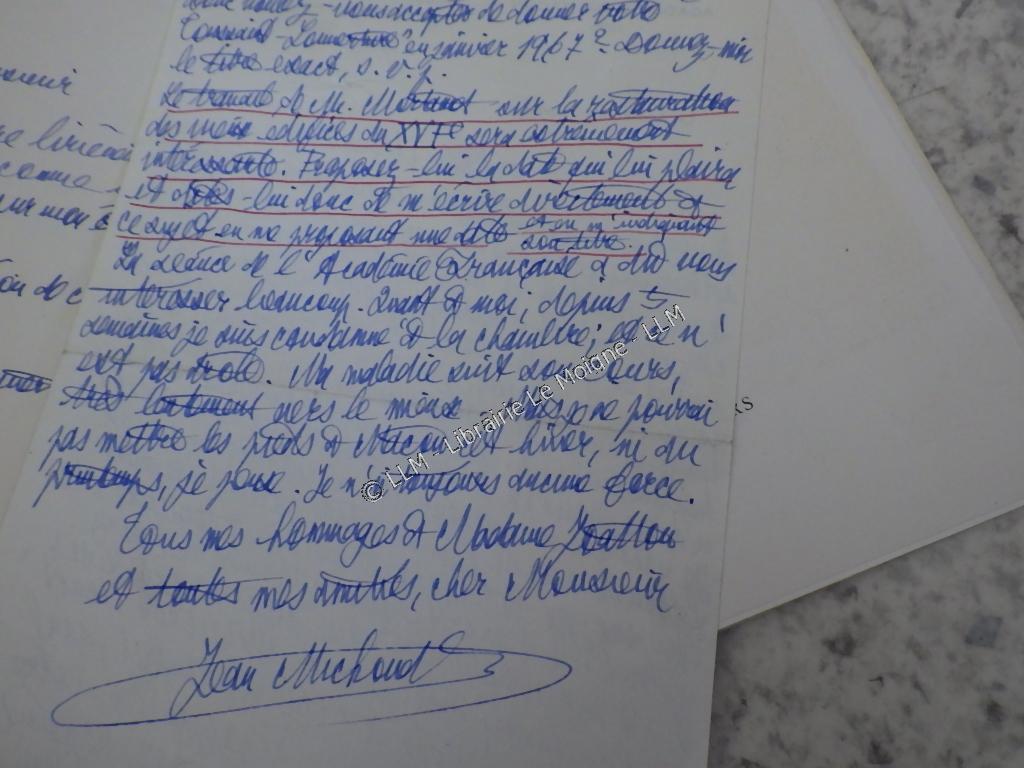 vous acceptez de donner votre
en janvier 1967? Donnez-m'en
le titre exact, s. v. p.
Le travail de M. sur la restauration
des vieux édifices du XVIe sera extrêmement
intéressante. Proposez-lui la date qui lui plaira
et dites-lui donc de m'écrire directement à
ce sujet en me proposant une date et en m'indiquant
son titre.
La séance de l'Académie Française a dû vous
intéresser beaucoup. Quant à moi, depuis 5
semaines je suis condamné à la chambre; et ce n'
est pas drôle. Ma maladie suit son cours,
très lentement vers le mieux mais je ne pourrai
pas mettre les pieds à Mâcon cet hiver, ni au
printemps, je pense. Je n'ai toujours aucune force.
Tous mes hommages à Madame
et toutes mes amitiés, cher Monsieur
Jean Michaud
© LLM - Librairie Le Moiane - LLM
RS